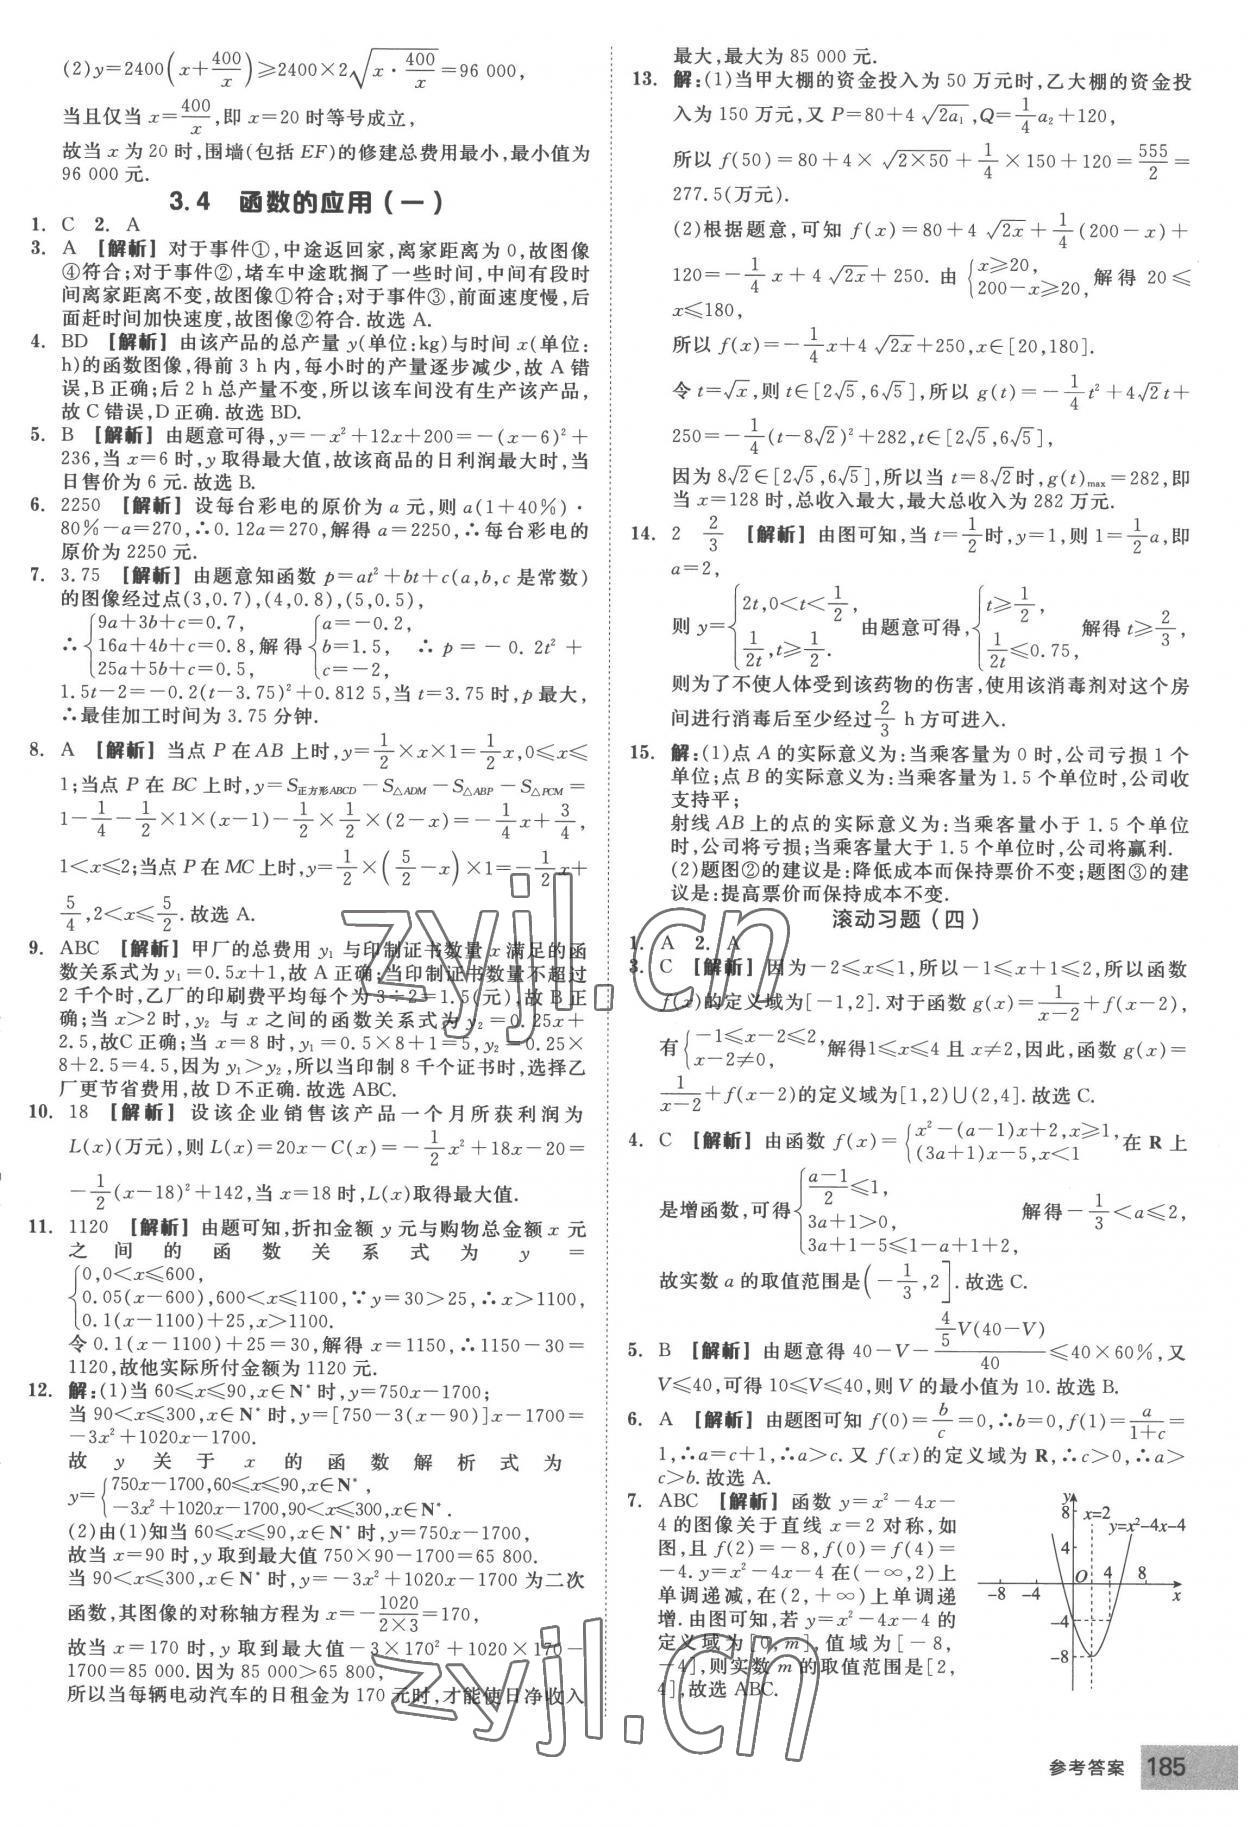 (2)y=2400(x+400/x)≥2400×2√(x·400/x)=96 000,
当且仅当 x=400/x,即 x=20 时等号成立,
故当 x 为 20 时,围墙(包括 EF)的修建总费用最小,最小值为
96 000 元.
3.4 函数的应用(一)
1. C 2. A
3. A 【解析】对于事件①,中途返回家,离家距离为 0,故图像
④符合;对于事件②,堵车中途耽搁了一些时间,中间有段时
间离家距离不变,故图像①符合;对于事件③,前面速度慢,后
面赶时间加快速度,故图像②符合.故选 A.
4. BD 【解析】由该产品的总产量 y(单位:kg)与时间 x(单位:
h)的函数图像,得前 3 h 内,每小时的产量逐步减少,故 A 错
误,B 正确;后 2 h 总产量不变,所以该车间没有生产该产品,
故 C 错误,D 正确.故选 BD.
5. B 【解析】由题意可得,y=-x²+12x+200=-(x-6)²+
236,当 x=6 时,y 取得最大值,故该商品的日利润最大时,当
日售价为 6 元.故选 B.
6. 2250 【解析】设每台彩电的原价为 a 元,则 a(1+40%)·
80%-a=270,∴0.12a=270,解得 a=2250,∴每台彩电的
原价为 2250 元.
7. 3.75 【解析】由题意知函数 p=at²+bt+c(a,b,c 是常数)
的图像经过点(3,0.7),(4,0.8),(5,0.5),
∴{9a+3b+c=0.7, 16a+4b+c=0.8, 25a+5b+c=0.5, 解得{a=-0.2, b=1.5, c=-2, ∴p=-0.2t²+
1.5t-2=-0.2(t-3.75)²+0.812 5,当 t=3.75 时,p 最大,
∴最佳加工时间为 3.75 分钟.
8. A 【解析】当点 P 在 AB 上时,y=1/2×x×1=1/2x,0≤x≤
1;当点 P 在 BC 上时,y=S正方形ABCD-S△ADM-S△ABP-S△PCM=
1-1/4-1/2×1×(x-1)-1/2×1/2×(2-x)=-1/4x+3/4,
1<x≤2;当点 P 在 MC 上时,y=1/2×(5/2-x)×1=-1/2x+
5/4,2<x≤5/2.故选 A.
9. ABC 【解析】甲厂的总费用 y₁ 与印制证书数量 x 满足的函
数关系式为 y₁=0.5x+1,故 A 正确;当印制证书数量不超过
2 千个时,乙厂的印刷费平均每个为 3÷2=1.5(元),故 B 正
确;当 x>2 时,y₂ 与 x 之间的函数关系式为 y₂=0.25x+
2.5,故C正确;当 x=8 时,y₁=0.5×8+1=5,y₂=0.25×
8+2.5=4.5,因为 y₁>y₂,所以当印制 8 千个证书时,选择乙
厂更节省费用,故 D 不正确.故选 ABC.
10. 18 【解析】设该企业销售该产品一个月所获利润为
L(x)(万元),则 L(x)=20x-C(x)=-1/2x²+18x-20=
-1/2(x-18)²+142,当 x=18 时,L(x)取得最大值.
11. 1120 【解析】由题可知,折扣金额 y 元与购物总金额 x 元
之间的函数关系式为 y=
{0,0<x≤600, 0.05(x-600),600<x≤1100, 0.1(x-1100)+25,x>1100. ∵y=30>25,∴x>1100,
令 0.1(x-1100)+25=30,解得 x=1150,∴1150-30=
1120,故他实际所付金额为 1120 元.
12. 解:(1)当 60≤x≤90,x∈N* 时,y=750x-1700;
当 90<x≤300,x∈N* 时,y=[750-3(x-90)]x-1700=
-3x²+1020x-1700.
故 y 关于 x 的函数解析式为
y={750x-1700,60≤x≤90,x∈N*, -3x²+1020x-1700,90<x≤300,x∈N*.
(2)由(1)知当 60≤x≤90,x∈N* 时,y=750x-1700,
故当 x=90 时,y 取到最大值 750×90-1700=65 800.
当 90<x≤300,x∈N* 时,y=-3x²+1020x-1700 为二次
函数,其图像的对称轴方程为 x=-1020/2×3=170,
故当 x=170 时,y 取到最大值-3×170²+1020×170-
1700=85 000.因为 85 000>65 800,
所以当每辆电动汽车的日租金为 170 元时,才能使日净收入
最大,最大为 85 000 元.
13. 解:(1)当甲大棚的资金投入为 50 万元时,乙大棚的资金投
入为 150 万元,又 P=80+4√(2a₁),Q=1/4a₂+120,
所以 f(50)=80+4×√(2×50)+1/4×150+120=555/2=
277.5(万元).
(2)根据题意,可知 f(x)=80+4√(2x)+1/4(200-x)+
120=-1/4x+4√(2x)+250.由{x≥20, 200-x≥20, 解得 20≤
x≤180,
所以 f(x)=-1/4x+4√(2x)+250,x∈[20,180].
令 t=√x,则 t∈[2√5,6√5],所以 g(t)=-1/4t²+4√2t+
250=-1/4(t-8√2)²+282,t∈[2√5,6√5],
因为 8√2∈[2√5,6√5],所以当 t=8√2时,g(t)max=282,即
当 x=128 时,总收入最大,最大总收入为 282 万元.
14. 2 2/3 【解析】由图可知,当 t=1/2时,y=1,则 1=1/2a,即
a=2,
则 y={2t,0<t<1/2, 1/2t,t≥1/2. 由题意可得,{t≥1/2, 1/2t≤0.75, 解得 t≥2/3,
则为了不使人体受到该药物的伤害,使用该消毒剂对这个房
间进行消毒后至少经过2/3 h 方可进入.
15. 解:(1)点 A 的实际意义为:当乘客量为 0 时,公司亏损 1 个
单位;点 B 的实际意义为:当乘客量为 1.5 个单位时,公司收
支持平;
射线 AB 上的点的实际意义为:当乘客量小于 1.5 个单位
时,公司将亏损;当乘客量大于 1.5 个单位时,公司将赢利.
(2)题图②的建议是:降低成本而保持票价不变;题图③的建
议是:提高票价而保持成本不变.
滚动习题(四)
1. A 2. A
3. C 【解析】因为-2≤x≤1,所以-1≤x+1≤2,所以函数
f(x)的定义域为[-1,2].对于函数 g(x)=1/x-2+f(x-2),
有{-1≤x-2≤2, x-2≠0, 解得1≤x≤4 且 x≠2,因此,函数 g(x)=
1/x-2+f(x-2)的定义域为[1,2)∪(2,4].故选 C.
4. C 【解析】由函数 f(x)={x²-(a-1)x+2,x≥1, (3a+1)x-5,x<1 在 R 上
是增函数,可得{a-1/2≤1, 3a+1>0, 3a+1-5≤1-a+1+2, 解得-1/3<a≤2,
故实数 a 的取值范围是(-1/3,2].故选 C.
5. B 【解析】由题意得 40-V-4/5V(40-V)/40≤40×60%,又
V≤40,可得 10≤V≤40,则 V 的最小值为 10.故选 B.
6. A 【解析】由题图可知 f(0)=b/c=0,∴b=0,f(1)=a/1+c=
1,∴a=c+1,∴a>c.又 f(x)的定义域为 R,∴c>0,∴a>
c>b.故选 A.
7. ABC 【解析】函数 y=x²-4x-
4 的图像关于直线 x=2 对称,如
图,且 f(2)=-8,f(0)=f(4)=
-4.y=x²-4x-4 在(-∞,2)上
单调递减,在(2,+∞)上单调递
增.由图可知,若 y=x²-4x-4 的
定义域为[0,m],值域为[-8,
-4],则实数 m 的取值范围是[2,
4],故选 ABC.
y
8
x=2
y=x²-4x-4
4
O 4 8
-8 -4
x
-4
-8
zyjl.cn
zyjl.cn
参考答案 185